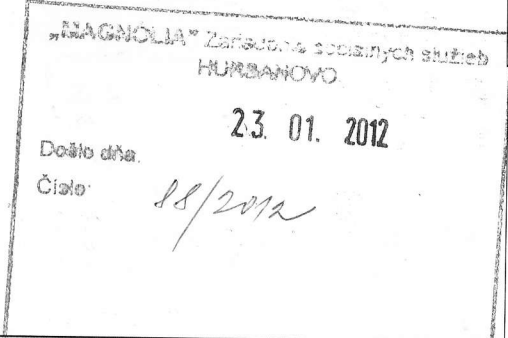 „MAGNOLIA“ Zariadenie sociálnych služieb
HURBANOVO
23. 01. 2012
Došlo dňa:
Číslo: 88/2012